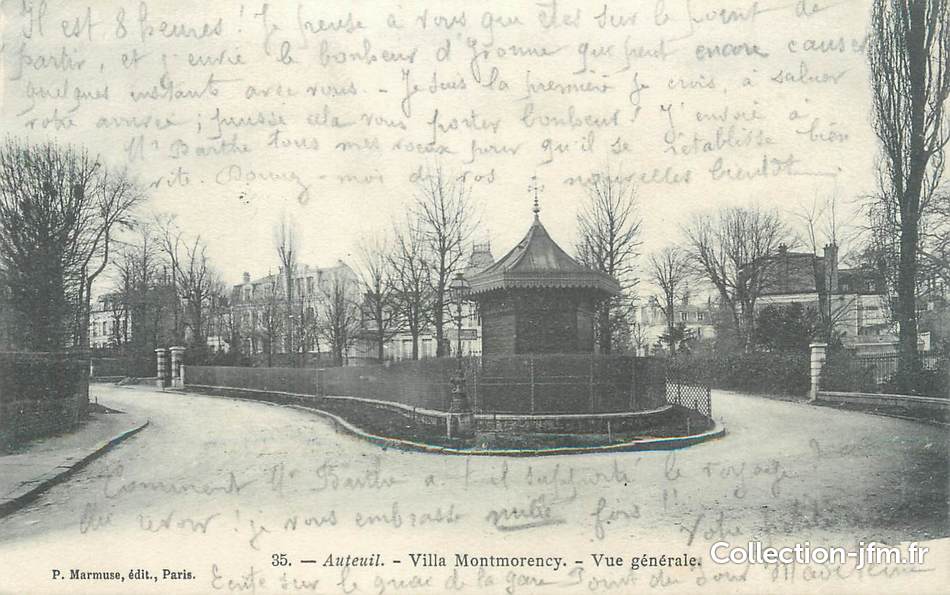 Il est 8 heures! Je pense à vous qui êtes sur le point de
partir, et j'envie le bonheur d'Yvonne qui peut encore causer
quelques instants avec vous. - Je suis la première je crois, à saluer
votre arrivée; puisse cela vous porter bonheur! J'envoie à
Mr Barthe tous mes voeux pour qu'il se rétablisse bien
vite. Donnez-moi de vos nouvelles bientôt
Comment Mr Barthe a-t-il supporté le voyage?
Au revoir! je vous embrasse mille fois!
Votre petite
35. — Auteuil. - Villa Montmorency. - Vue générale.
Collection-jfm.fr
P. Marmuse, édit., Paris.
Ecrite sur le quai de la gare Point du Jour Madeleine